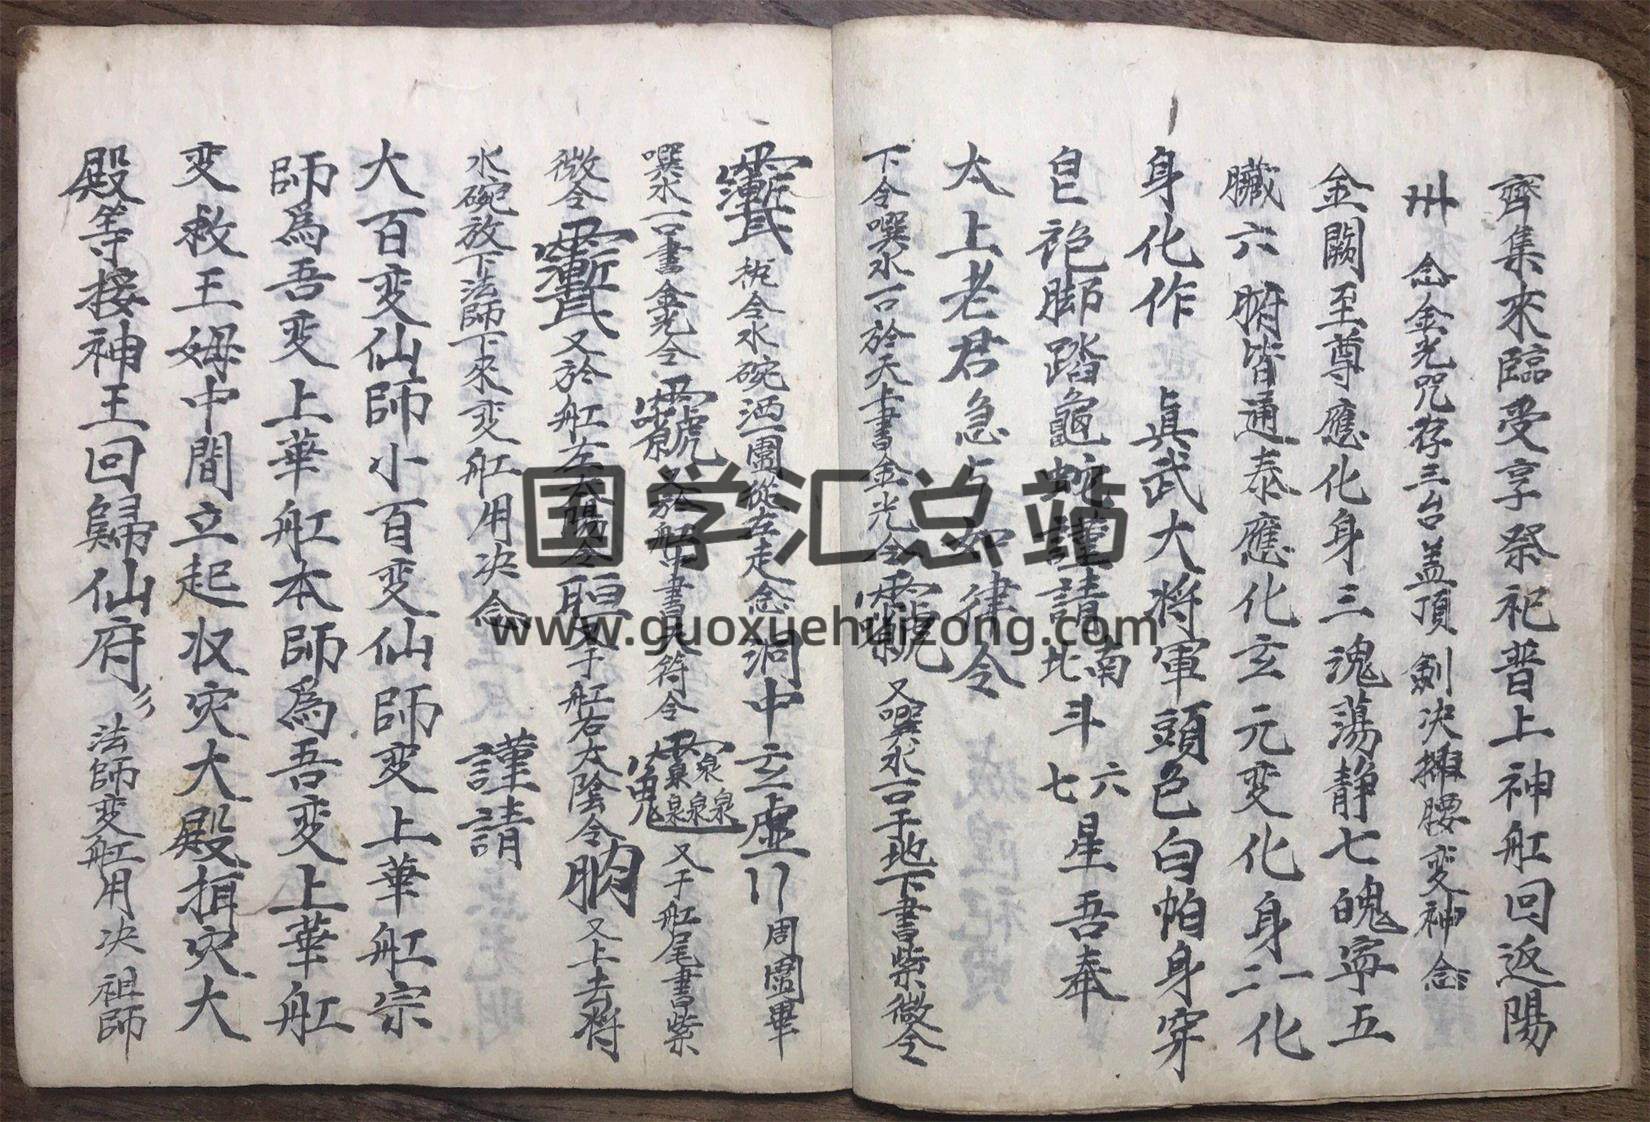 齊集來臨受享祭祀普上神舡回返陽
州 念金光咒存三台盖頂 劍决 腰変神念
金闕至尊應化身三魂蕩静七魄寕五
臟六腑皆通泰應化玄元変化身二一化
身化作 眞武大将軍頭色白帕身穿
皂袍脚踏龜蛇謹請南北斗六七星吾奉
太上老君急々如律令
下令噀水一口於天上書金光令 又噀水一口于地下書紫微令
柢令水碗洒一圍從左走念 洞中玄虚〃 周圍畢
噀水一口書金光令 又於船中書大符令 又于舡尾書紫
微令 又於舡左太陽令 又于舡右太陰令 又上去将
水碗放下法師下來変舡用决念 謹請
大百变仙師小百变仙師変上華舡宗
師為吾变上華舡本師為吾変上華舡
変救王姆中間立起収灾大殿揖灾大
殿等接神王回歸仙府〃 法師変舡用决 祖師
国学汇总站
www.guoxuehuizong.com